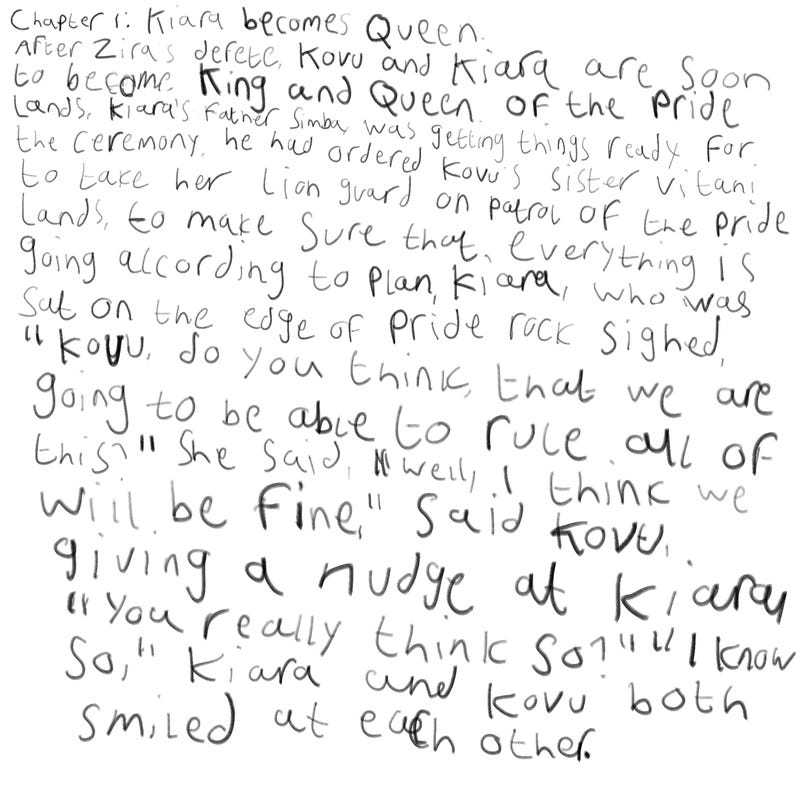 Chapter 1: Kiara becomes Queen.
After Zira's defete, Kovu and Kiara are soon
to become King and Queen of the Pride
Lands, Kiara's Father Simba was getting things ready for
the ceremony, he had ordered Kovu's sister vitani
to take her Lion guard on patrol of the pride
Lands, to make sure that, everything is
going alccording to plan, Kiara, who was
sat on the edge of pride rock sighed,
"Kovu, do you think, that we are
going to be able to rule all of
this?" She said, "Well, I think we
will be fine," Said Kovu,
giving a nudge at Kiara,
"You really think so?" "I know
so," Kiara and Kovu both
smiled at each other.